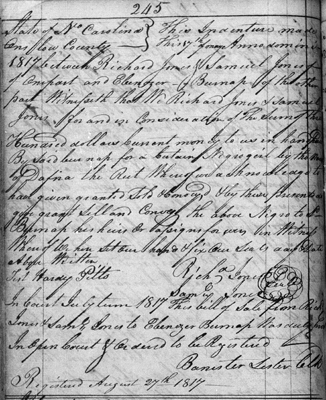 245
State of No Carolina } This Indenture made
Onslow County } This 17 Anno domini
1817 between Richard Jones & Samuel Jones of
one part and Ebenezer Burnap of the other
part Witnesseth that We Richard Jones & Samuel
Jones for and in Consideration of The Sum of three
Hundred dollars Current money to us in hand paid
By Said Burnap for a Certain Negro girl by the Name
of Dafna the Rec't Whereof we acknowledge to
have given granted Sold & Convey & by these presents
give grant Sell and Convey the above Negro to Sd
Burnap his heirs & assigns for ever in Witness
Whereof We hereunto Set our hands & fix our Seals day & date
above Written
Test Hardy Pitts
Richd Jones Seal
Saml Jones
In Court July term 1817 This bill of Sale from Richd
Jones & Saml Jones to Ebenezer Burnap was duly proved
In Open Court & Ordered to be Registered
Banister Lester Clk
Registered August 27th 1817